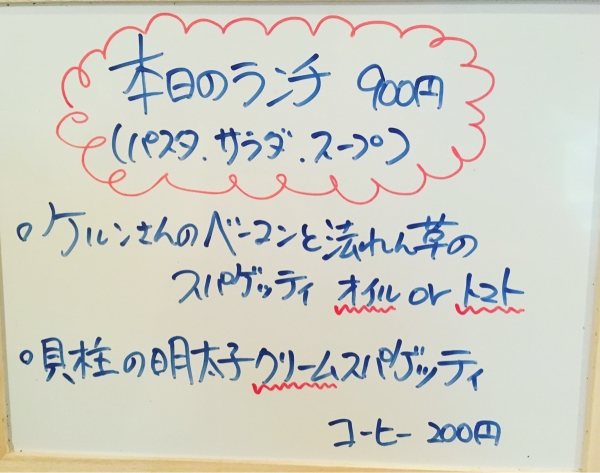 本日のランチ 900円
(パスタ.サラダ.スープ)
○ケルンさんのベーコンと法れん草の
スパゲッティ オイル or トマト
○貝柱の明太子クリームスパゲッティ
コーヒー 200円